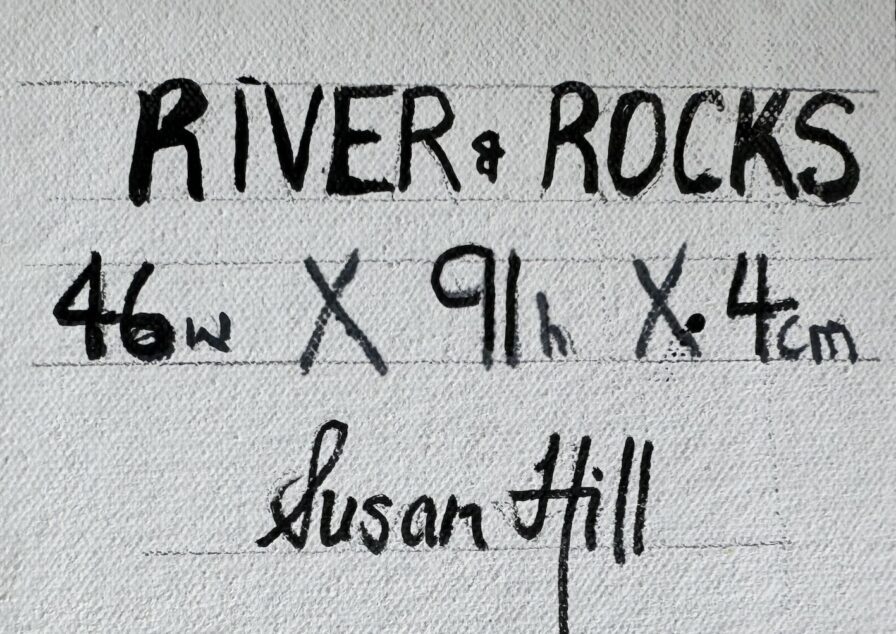 RIVER & ROCKS
46w X 91h X .4cm
Susan Hill